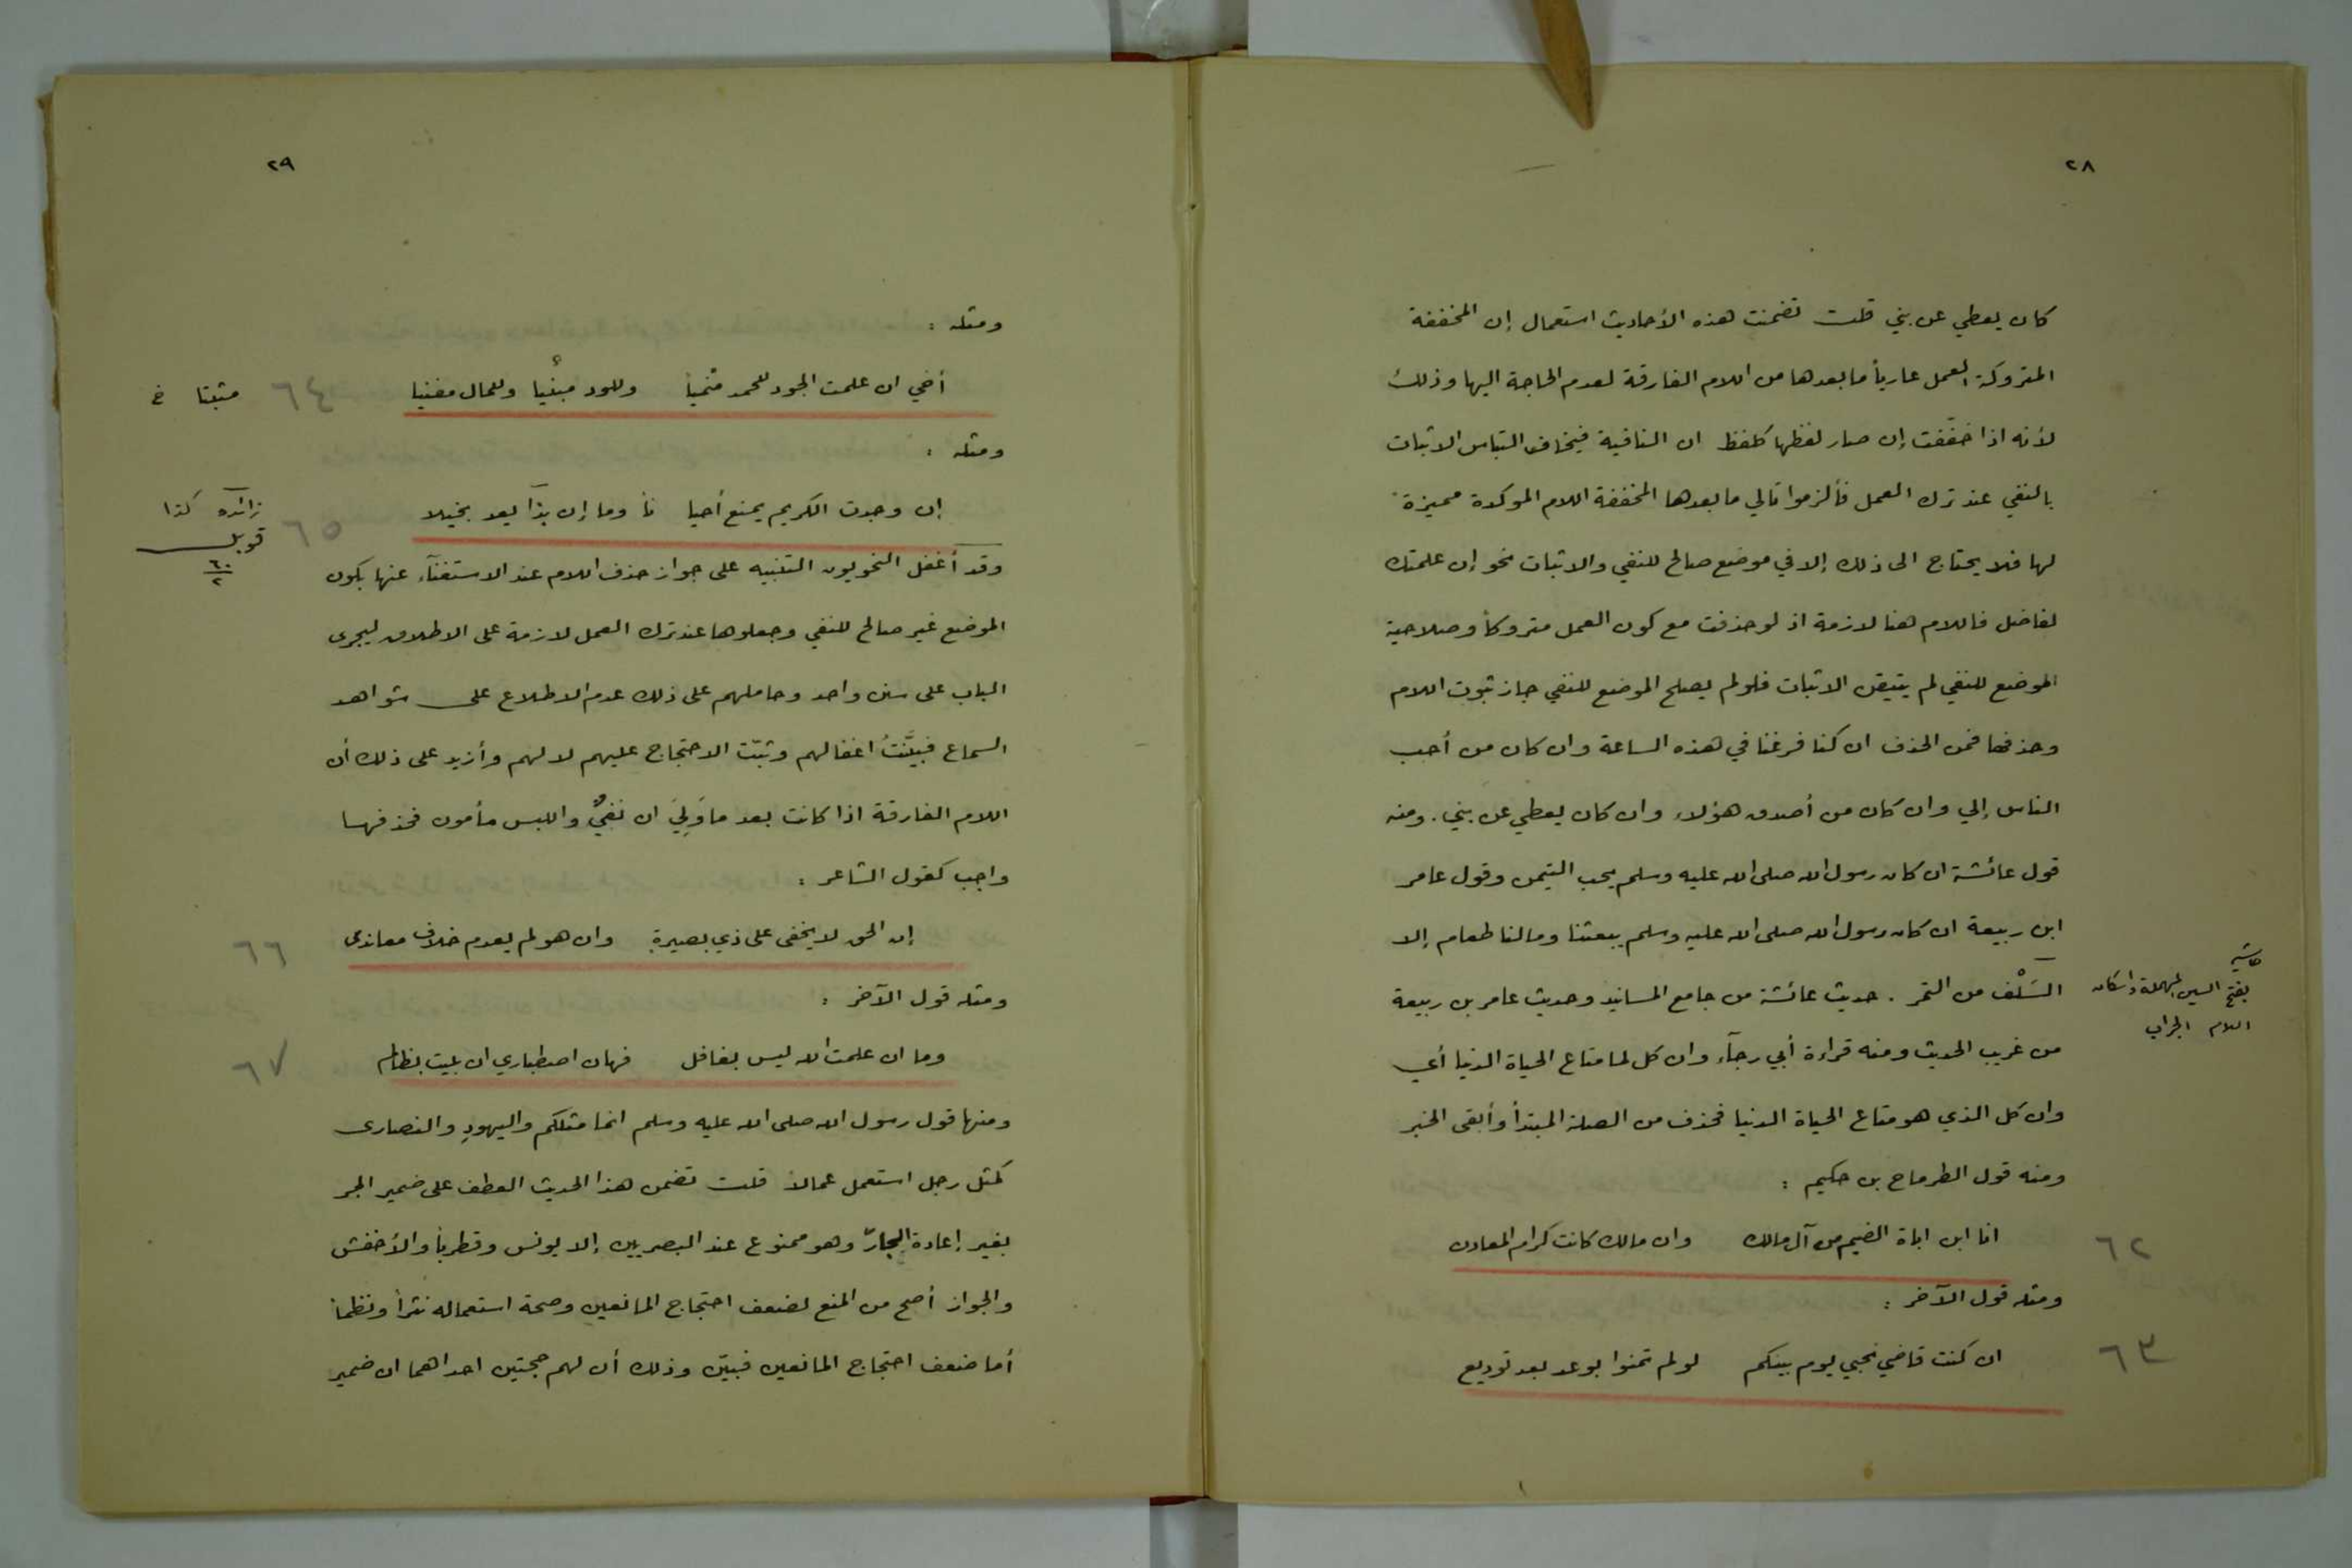 ٢٨
كان يعطي عن بني قلت تضمنت هذه الأحاديث استعمال إن المخففة
المتروكة العمل عارياً ما بعدها من اللام الفارقة لعدم الحاجة اليها وذلك
لأنه اذا خففت إن صار لفظها كلفظ ان النافية فيخاف التباس الاثبات
بالنفي عند ترك العمل فألزموا تالي ما بعدها المخففة اللام الموكدة مميزة
لها فلا يحتاج الى ذلك إلا في موضع صالح للنفي والاثبات نحو إن علمتك
لفاضل فاللام هنا لازمة اذ لو حذفت مع كون العمل متروكاً وصلاحية
الموضع للنفي لم يتيقن الاثبات فلو لم يصلح الموضع للنفي جاز ثبوت اللام
وحذفها فمن الحذف ان كنا فرغنا في هذه الساعة وان كان من أحب
الناس إلي وان كان من أصدق هؤلاء وان كان يعطي عن بني . ومنه
قول عائشة ان كان رسول الله صلى الله عليه وسلم يحب التيمن وقول عامر
ابن ربيعة ان كان رسول الله صلى الله عليه وسلم يبعثنا ومالنا طعام إلا
السَلْف من التمر . حديث عائشة من جامع المسانيد وحديث عامر بن ربيعة
حاشية
بفتح السين المهملة واسكان
اللام الجراب
من غريب الحديث ومنه قراءة أبي رجآء وان كل لما متاع الحياة الدنيا أي
وان كل الذي هو متاع الحياة الدنيا فحذف من الصلة المبتدأ وأبقى الخبر
ومنه قول الطرماح بن حكيم :
انا ابن اباة الضيم من آل مالك وان مالك كانت كرام المعادن ٦٢
ومثله قول الآخر :
ان كنت قاضي نحبي يوم بينكم لو لم تمنوا بوعد بعد توديع ٦٣
٢٩
ومثله :
أخي ان علمت الجود للحمد مُنْمياً وللود مبْئيا وللمال مفنيا ٦٤ مثبتا خ
ومثله :
إن وجدت الكريم يمنع أحيا ناً وما إن بذا يعد بخيلا ٦٥ زائده كذا
قوبل
٦٠
٢
وقد أغفل النحويون التنبيه على جواز حذف اللام عند الاستغنآء عنها بكون
الموضع غير صالح للنفي وجعلوها عند ترك العمل لازمة على الاطلاق ليجرى
الباب على سنن واحد وحاملهم على ذلك عدم الاطلاع على شواهد
السماع فبيَّنتُ اغفالهم وثبّت الاحتجاج عليهم لا لهم وأزيد على ذلك أن
اللام الفارقة اذا كانت بعد ما وَلِيَ ان نفيٌ واللبس مأمون فحذفها
واجب كقول الشاعر :
إن الحق لا يخفى على ذي بصيرة وان هو لم يعدم خلاف معاندى ٦٦
ومثله قول الآخر :
وما ان علمت الله ليس بغافل فهان اصطباري ان بليت بظالم ٦٧
ومنها قول رسول الله صلى الله عليه وسلم انما مثلكم واليهودِ والنصارى
كمثل رجل استعمل عمالاً قلت تضمن هذا الحديث العطف على ضمير الجر
بغير إعادة الجارّ وهو ممنوع عند البصريين إلا يونس وقطرباً والأخفش
والجواز أصح من المنع لضعف احتجاج المانعين وصحة استعماله نثراً ونظماً
أما ضعف احتجاج المانعين فبيّن وذلك أن لهم حجتين احداهما ان ضمير